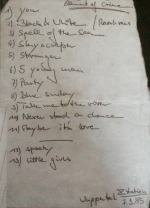 Element of Crime
1) you
2) Black & White / Rearviews
3) Spell of the Sea
4) Skyscraper
5) Stranger
6) 5 young men
7) Party
8) Blue Sunday
9) Take me to the river
10) Never stood a chance
11) Maybe it's love
12) speedy
13) little girls
Wuppertal
7.9.85